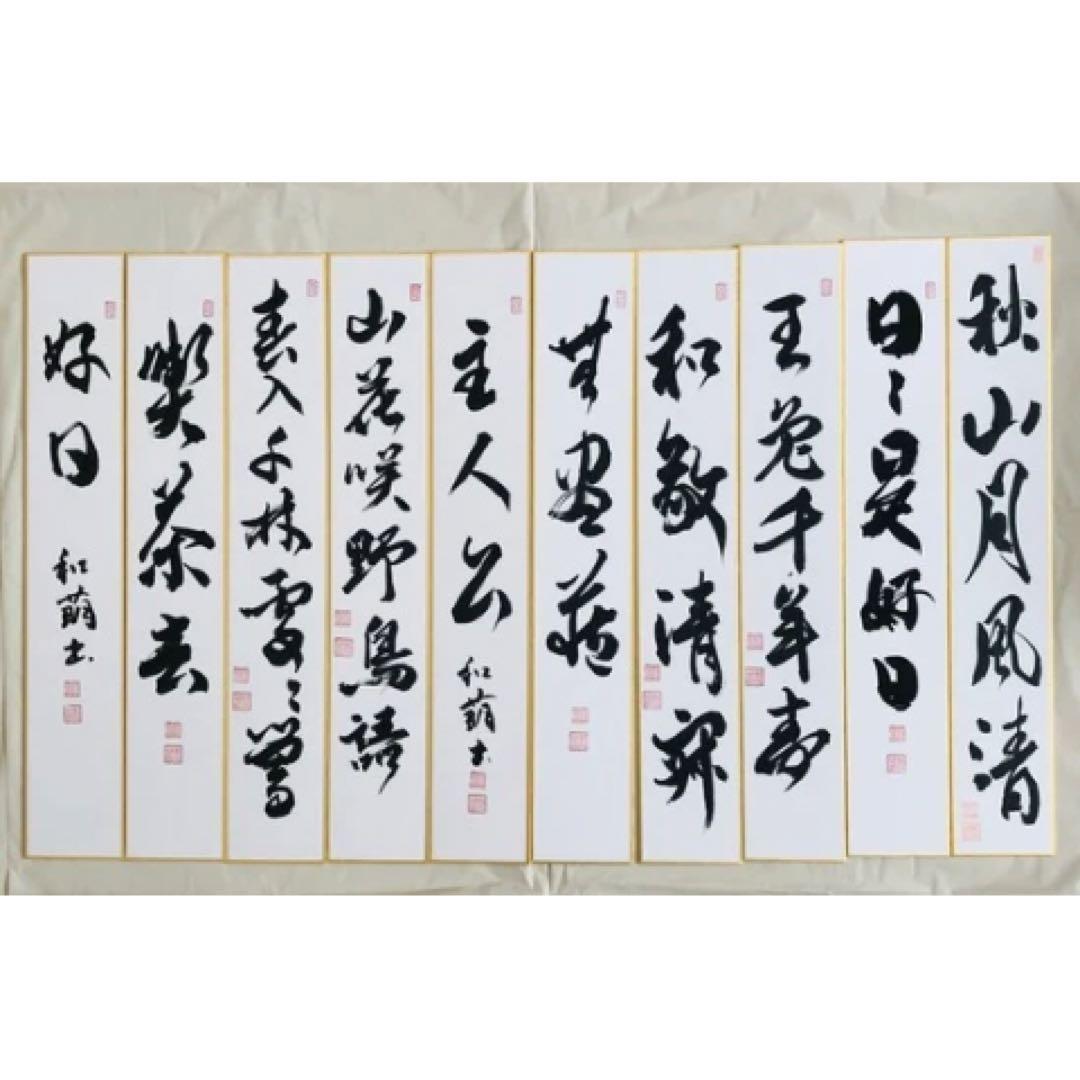 秋山月風清
日々是好日
玉兎千年寿
和敬清寂
無盡蔵
主人公
和萠書
山花咲野鳥語
春入千林處々鶯
喫茶去
好日
和萠書